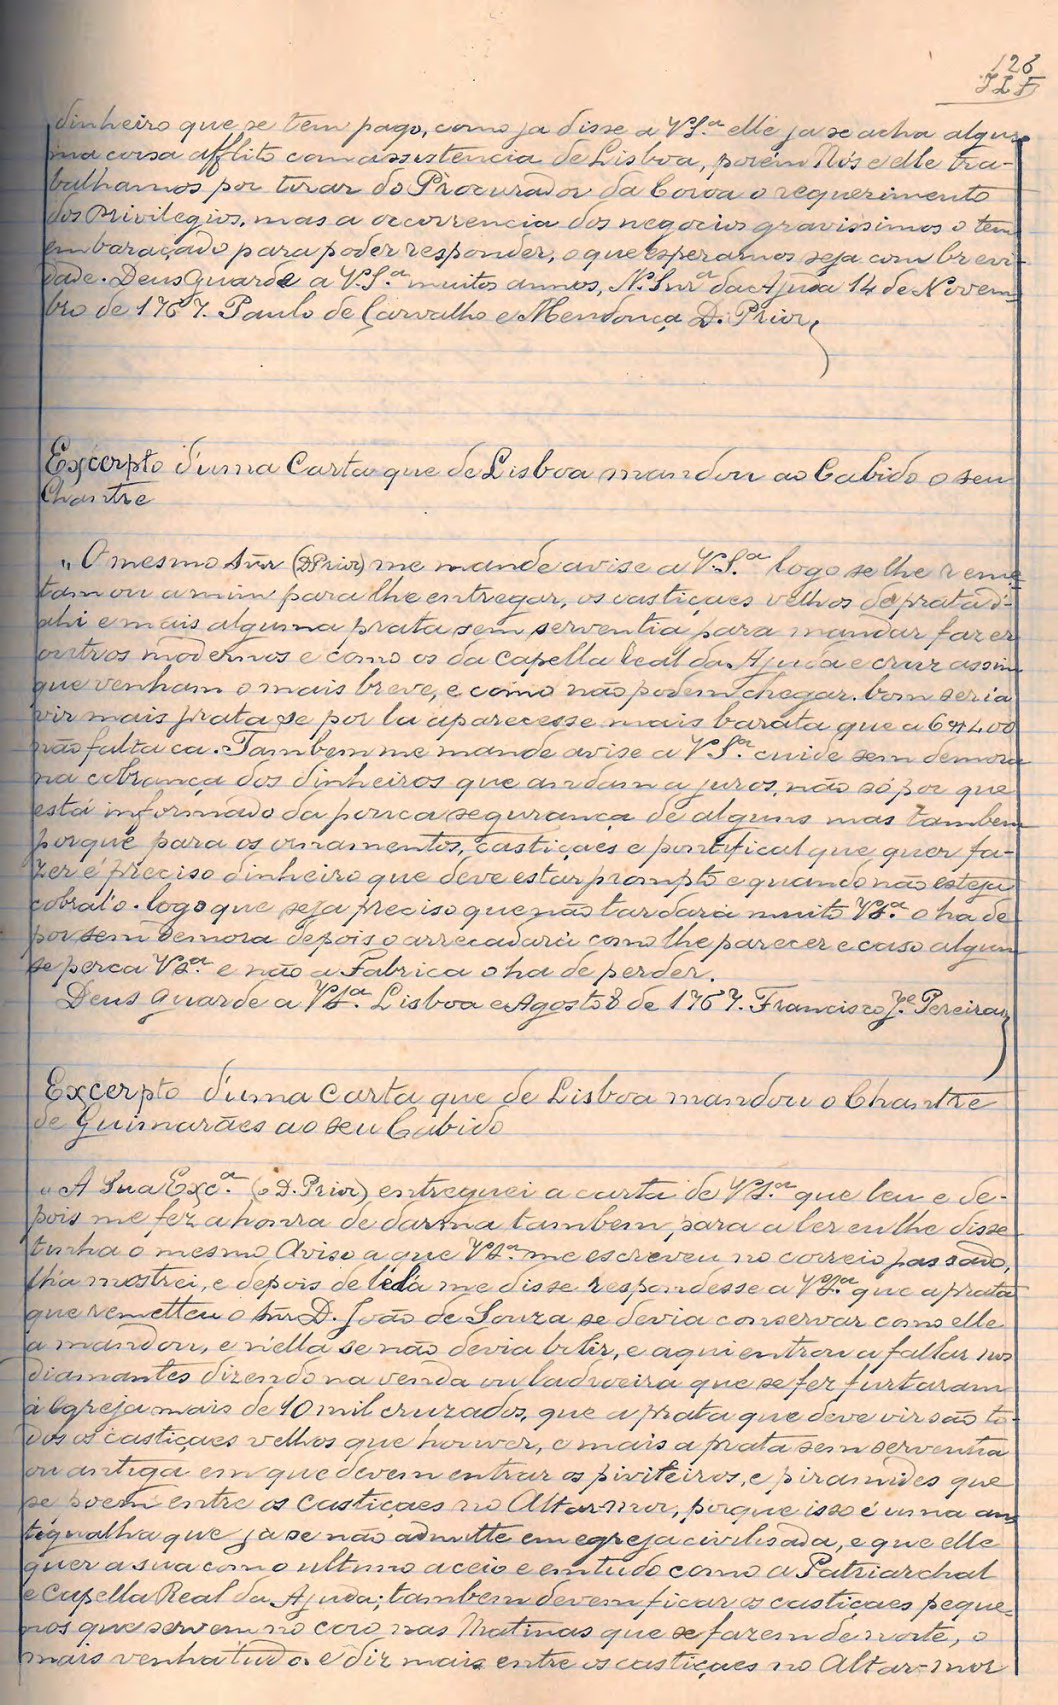 126
JLF
dinheiro que se tem pago, como ja disse a VS.ª elle ja se acha algu-
ma coisa afflito com assistencia de Lisboa, porém Nós e elle tra-
balhamos por tirar do Procurador da Coroa o requerimento
dos Privilegios, mas a occorrencia dos negocios gravissimos o tem
embaraçado para poder responder, o que esperamos seja com brevi-
dade. Deus Guarde a V.S.ª muitos annos, N. Snrª da Ajuda 14 de Novem-
bro de 1767. Paulo de Carvalho e Mendonça D. Prior,
Excerpto d'uma Carta que de Lisboa mandou ao Cabido o seu
Chantre
"O mesmo Snr (D Prior) me mande avise a V.S.ª logo se lhe reme-
tam ou a mim para lhe entregar, os castiçaes velhos de prata d'-
ahi e mais alguma prata sem serventia para mandar fazer
outros modernos e como os da Capella Real da Ajuda e cruz assim
que venham o mais breve, e como não podem chegar. bom seria
vir mais prata se por la aparecesse mais barata que a 6#400
não falta ca. Tambem me mande avise a VSª. cuide sem demora
na cobrança dos dinheiros que andam a juros, não só por que
está informado da pouca segurança de alguns mas tambem
porque para os ornamentos, castiçaes e pontifical que quer fa-
zer é preciso dinheiro que deve estar prompto e quando não esteja
cobrato. logo que seja preciso que não tardará muito VSª. o ha de
por sem demora depois o arrecadará como lhe parecer e caso algum
se perca VSª. e não a Fabrica o ha de perder.
Deus Guarde a VSª. Lisboa e Agosto 8 de 1767. Francisco Jº. Pereira
Excerpto d'uma Carta que de Lisboa mandou o Chantre
de Guimarães ao seu Cabido
"A Sua Excª. (o D. Prior) entreguei a carta de VSª. que leu e de-
pois me fez a honra de dar-ma tambem para a ler eu lhe disse
tinha o mesmo Aviso a que VSª. me escreveu no correio passado,
lha mostrei, e depois de lêla me disse respondesse a VSª. que a prata
que remetteu o Snr D. João de Souza se devia conservar como elle
a mandou, e n'ella se não devia bulir, e aqui entrou a fallar nos
diamantes dizendo na venda ou ladroeira que se fez furtaram
á Egreja mais de 10 mil cruzados, que a prata que deve vir são to-
dos os castiçaes velhos que houver, e mais a prata sem serventia
ou antiga em que devem entrar os piviteiros, e piramides que
se poem entre os castiçaes no Altar-mor, porque isso é uma an-
tigualha que ja se não admitte em egreja civilisada, e que elle
quer a sua com o ultimo aceio e em tudo como a Patriarchal
e Capella Real da Ajuda; tambem devem ficar os castiçaes peque-
nos que servem no coro nas Matinas que se fazem de noite, o
mais venha tudo. e diz mais entre os castiçaes no Altar-mor